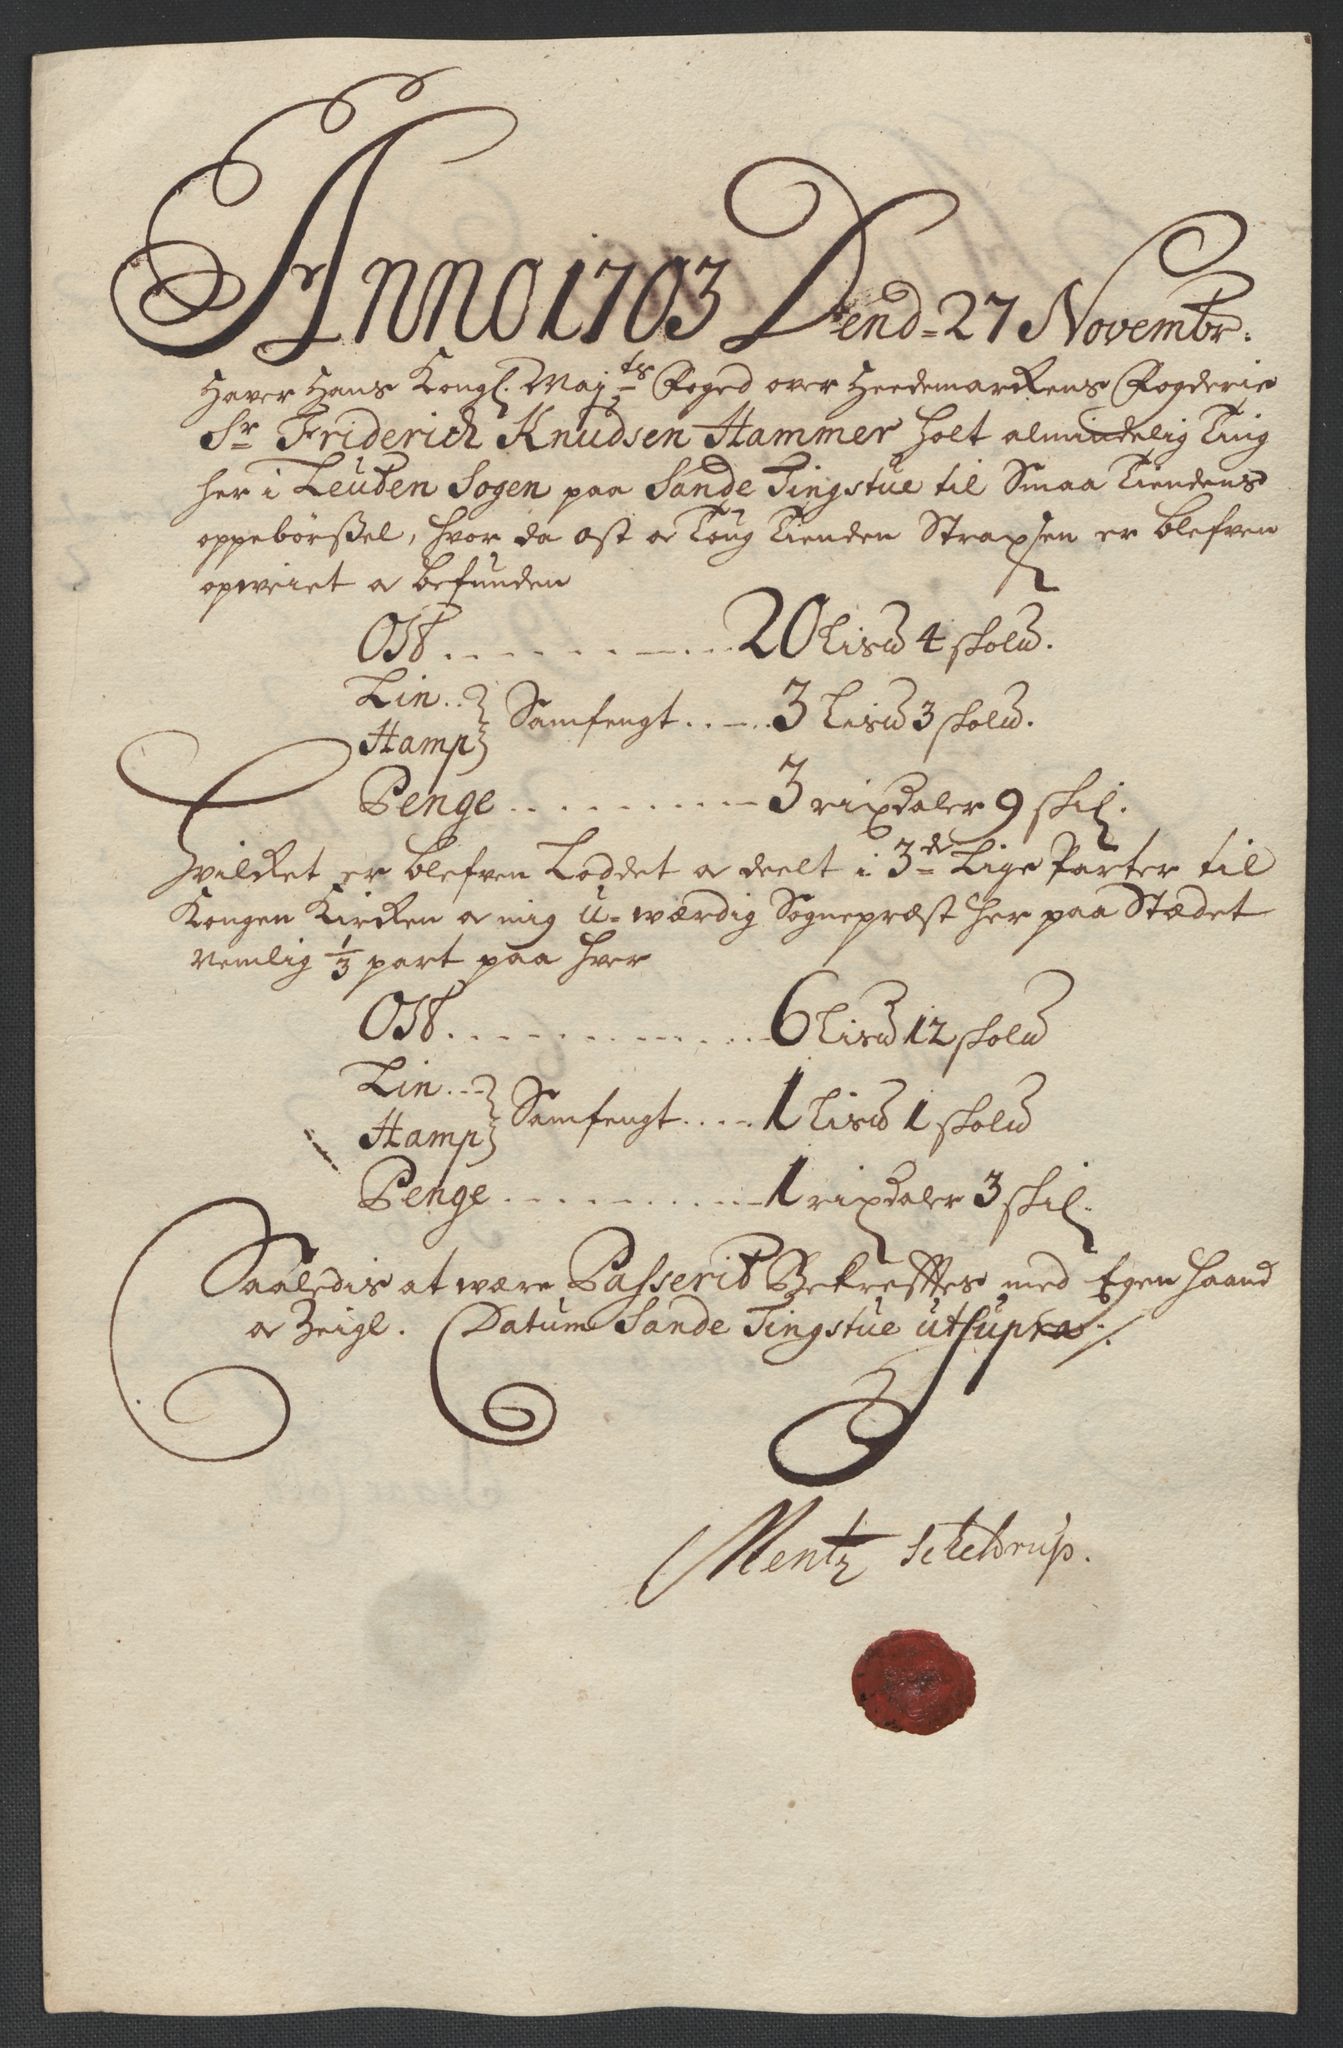 Anno 1703 Dend= 27 Novembr:
Haver Hans Kongl. Maj:ts Foged over Heedemarckens Fogderie
Sr Friderich Knudsen Hammer holt almindelig Ting
her i Leuten Sogen paa Sande Tingstue til Smaa Tiendens
oppebörßel, hvor da ost o Toug Tienden Straxsen er blefven
opveiet o befunden
Ost . . . . . . . . . . 20 Lisd 4 skold.
Lin . .
Hamp } Samfengt . . . . 3 Lisd 3 skold.
Penge . . . . . . . . . . 3 rixdaler 9 skil.
Hvilcket er blefven Loddet o deelt i 3de Lige Parter til
Kongen Kircken o mig u=wærdig Sognepræst her paa Stædet
nemlig 1/3 part paa hver
Ost . . . . . . . . . . . 6 Lisd 12 skold
Lin . . .
Hamp } Samfengt . . . . 1 Lisd 1 skold
Penge . . . . . . . . . . 1 rixdaler 3 skil.
Saaledis at være Passerit Bekreftes med Egen haand
o Zeigl. Datum Sande Tingstue ut supra ./.
Mentz Scheldrup.